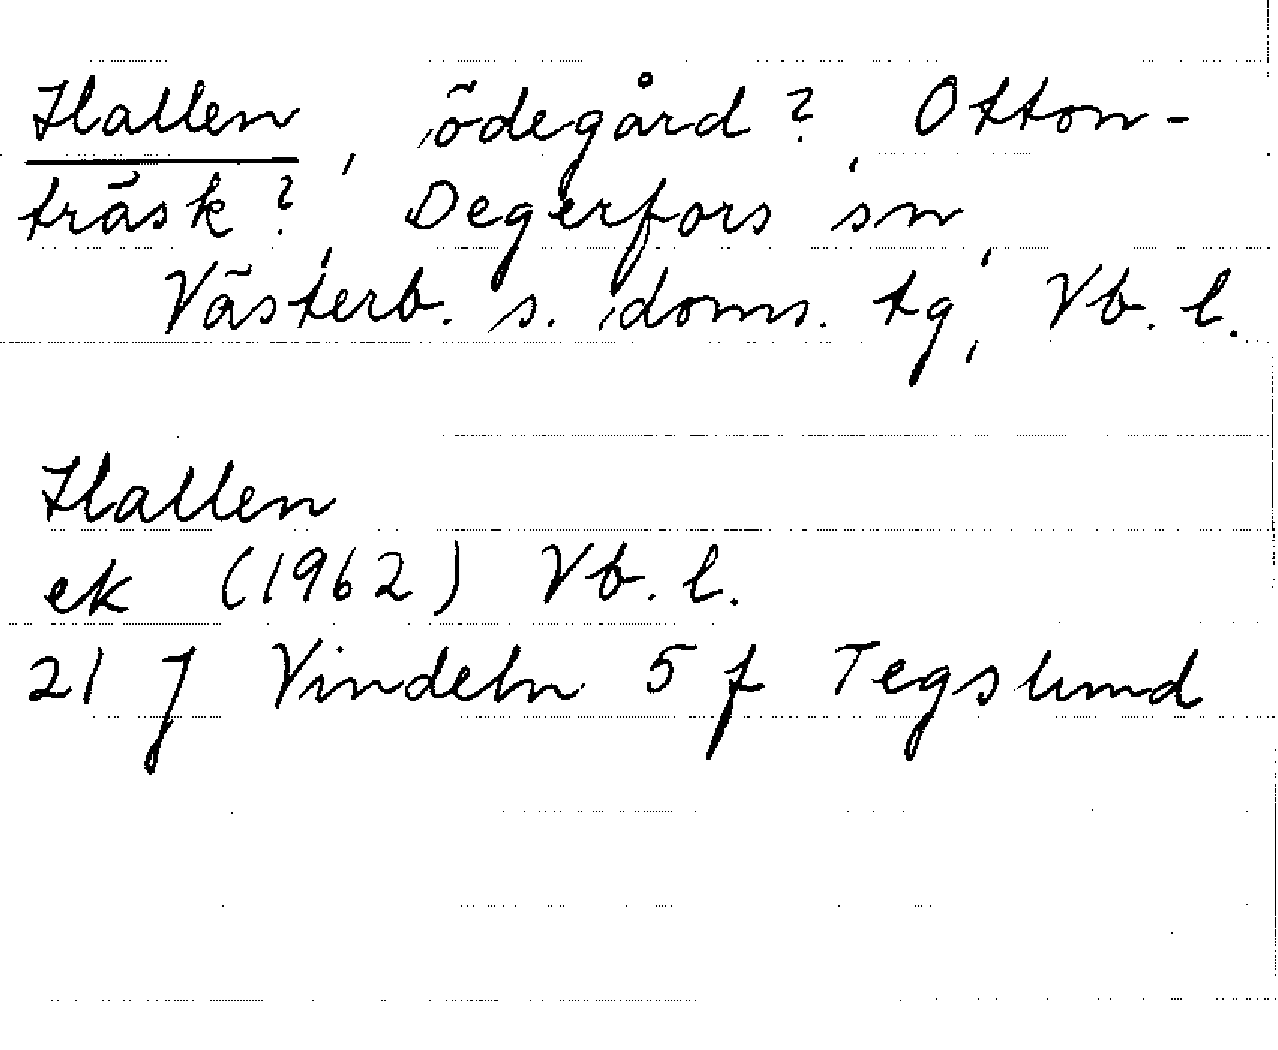 Hallen, ödegård?, Otton-
träsk?, Degerfors sn,
Västerb. s. doms. tg, Vb. l.
Hallen
ek (1962) Vb. l.
21 J Vindeln 5 f Tegslund